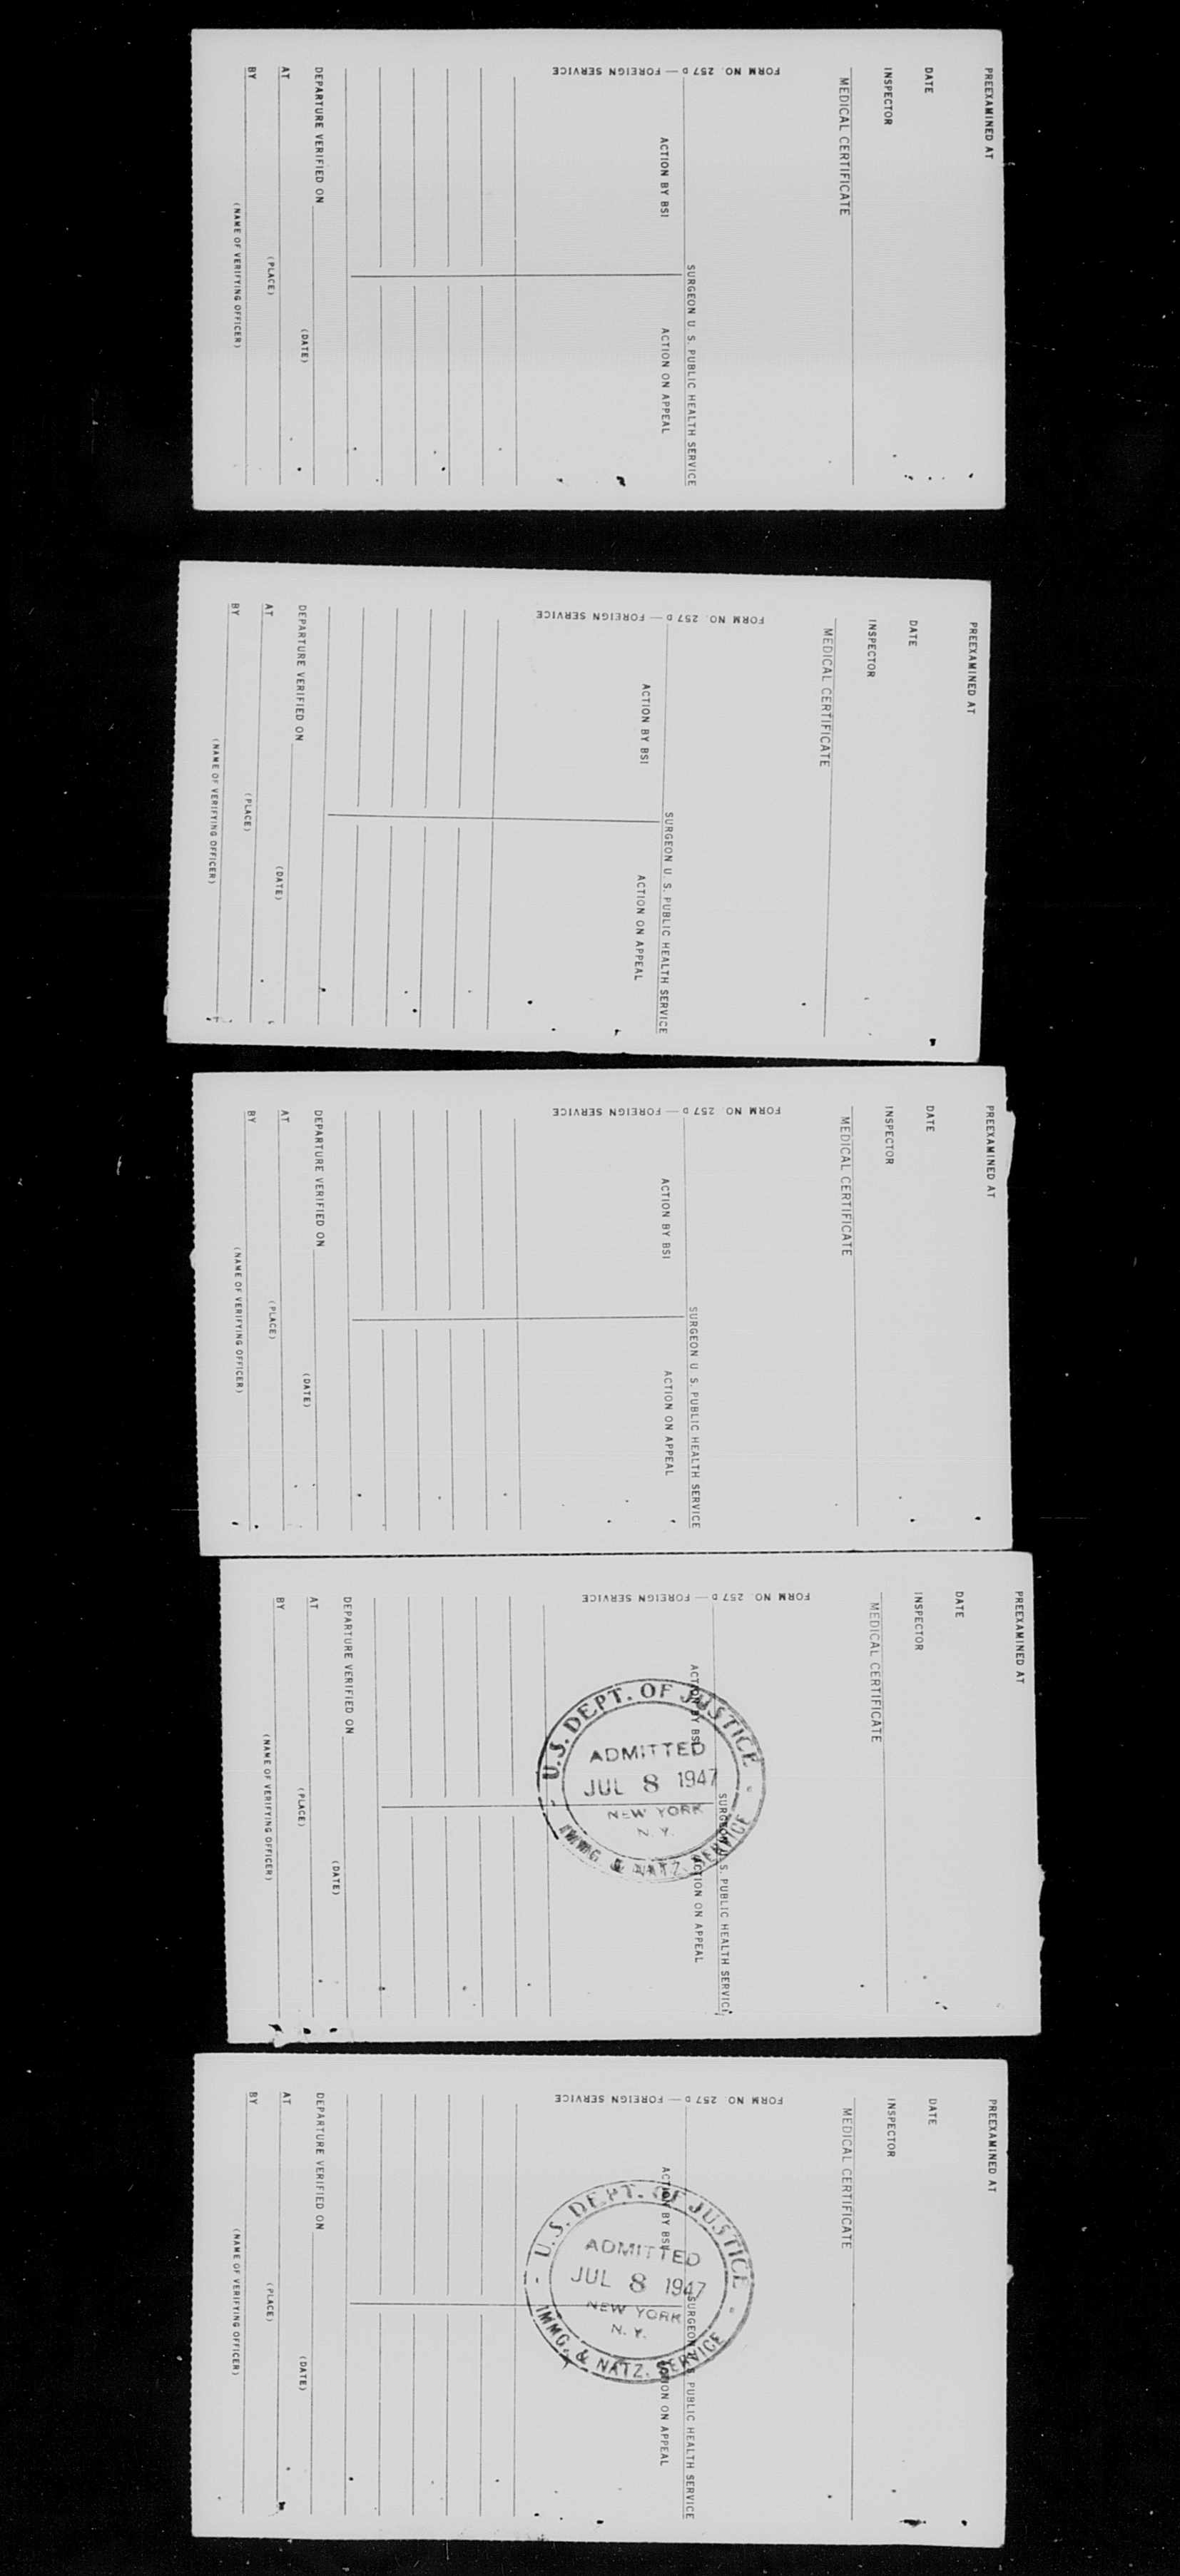 PREEXAMINED AT
DATE
INSPECTOR
MEDICAL CERTIFICATE
SURGEON U. S. PUBLIC HEALTH SERVICE
ACTION BY BSI
ACTION ON APPEAL
FORM NO. 257 D — FOREIGN SERVICE
DEPARTURE VERIFIED ON
(DATE)
AT
(PLACE)
BY
(NAME OF VERIFYING OFFICER)
PREEXAMINED AT
DATE
INSPECTOR
MEDICAL CERTIFICATE
SURGEON U. S. PUBLIC HEALTH SERVICE
ACTION BY BSI
ACTION ON APPEAL
FORM NO. 257 D — FOREIGN SERVICE
DEPARTURE VERIFIED ON
(DATE)
AT
(PLACE)
BY
(NAME OF VERIFYING OFFICER)
PREEXAMINED AT
DATE
INSPECTOR
MEDICAL CERTIFICATE
SURGEON U. S. PUBLIC HEALTH SERVICE
ACTION BY BSI
ACTION ON APPEAL
FORM NO. 257 D — FOREIGN SERVICE
DEPARTURE VERIFIED ON
(DATE)
AT
(PLACE)
BY
(NAME OF VERIFYING OFFICER)
PREEXAMINED AT
DATE
INSPECTOR
MEDICAL CERTIFICATE
SURGEON U. S. PUBLIC HEALTH SERVICE
ACTION BY BSI
ACTION ON APPEAL
FORM NO. 257 D — FOREIGN SERVICE
U.S. DEPT. OF JUSTICE
ADMITTED
JUL 8 1947
NEW YORK
N. Y.
IMMG. & NATZ. SERVICE
DEPARTURE VERIFIED ON
(DATE)
AT
(PLACE)
BY
(NAME OF VERIFYING OFFICER)
PREEXAMINED AT
DATE
INSPECTOR
MEDICAL CERTIFICATE
SURGEON U. S. PUBLIC HEALTH SERVICE
ACTION BY BSI
ACTION ON APPEAL
FORM NO. 257 D — FOREIGN SERVICE
U.S. DEPT. OF JUSTICE
ADMITTED
JUL 8 1947
NEW YORK
N. Y.
IMMG. & NATZ. SERVICE
DEPARTURE VERIFIED ON
(DATE)
AT
(PLACE)
BY
(NAME OF VERIFYING OFFICER)